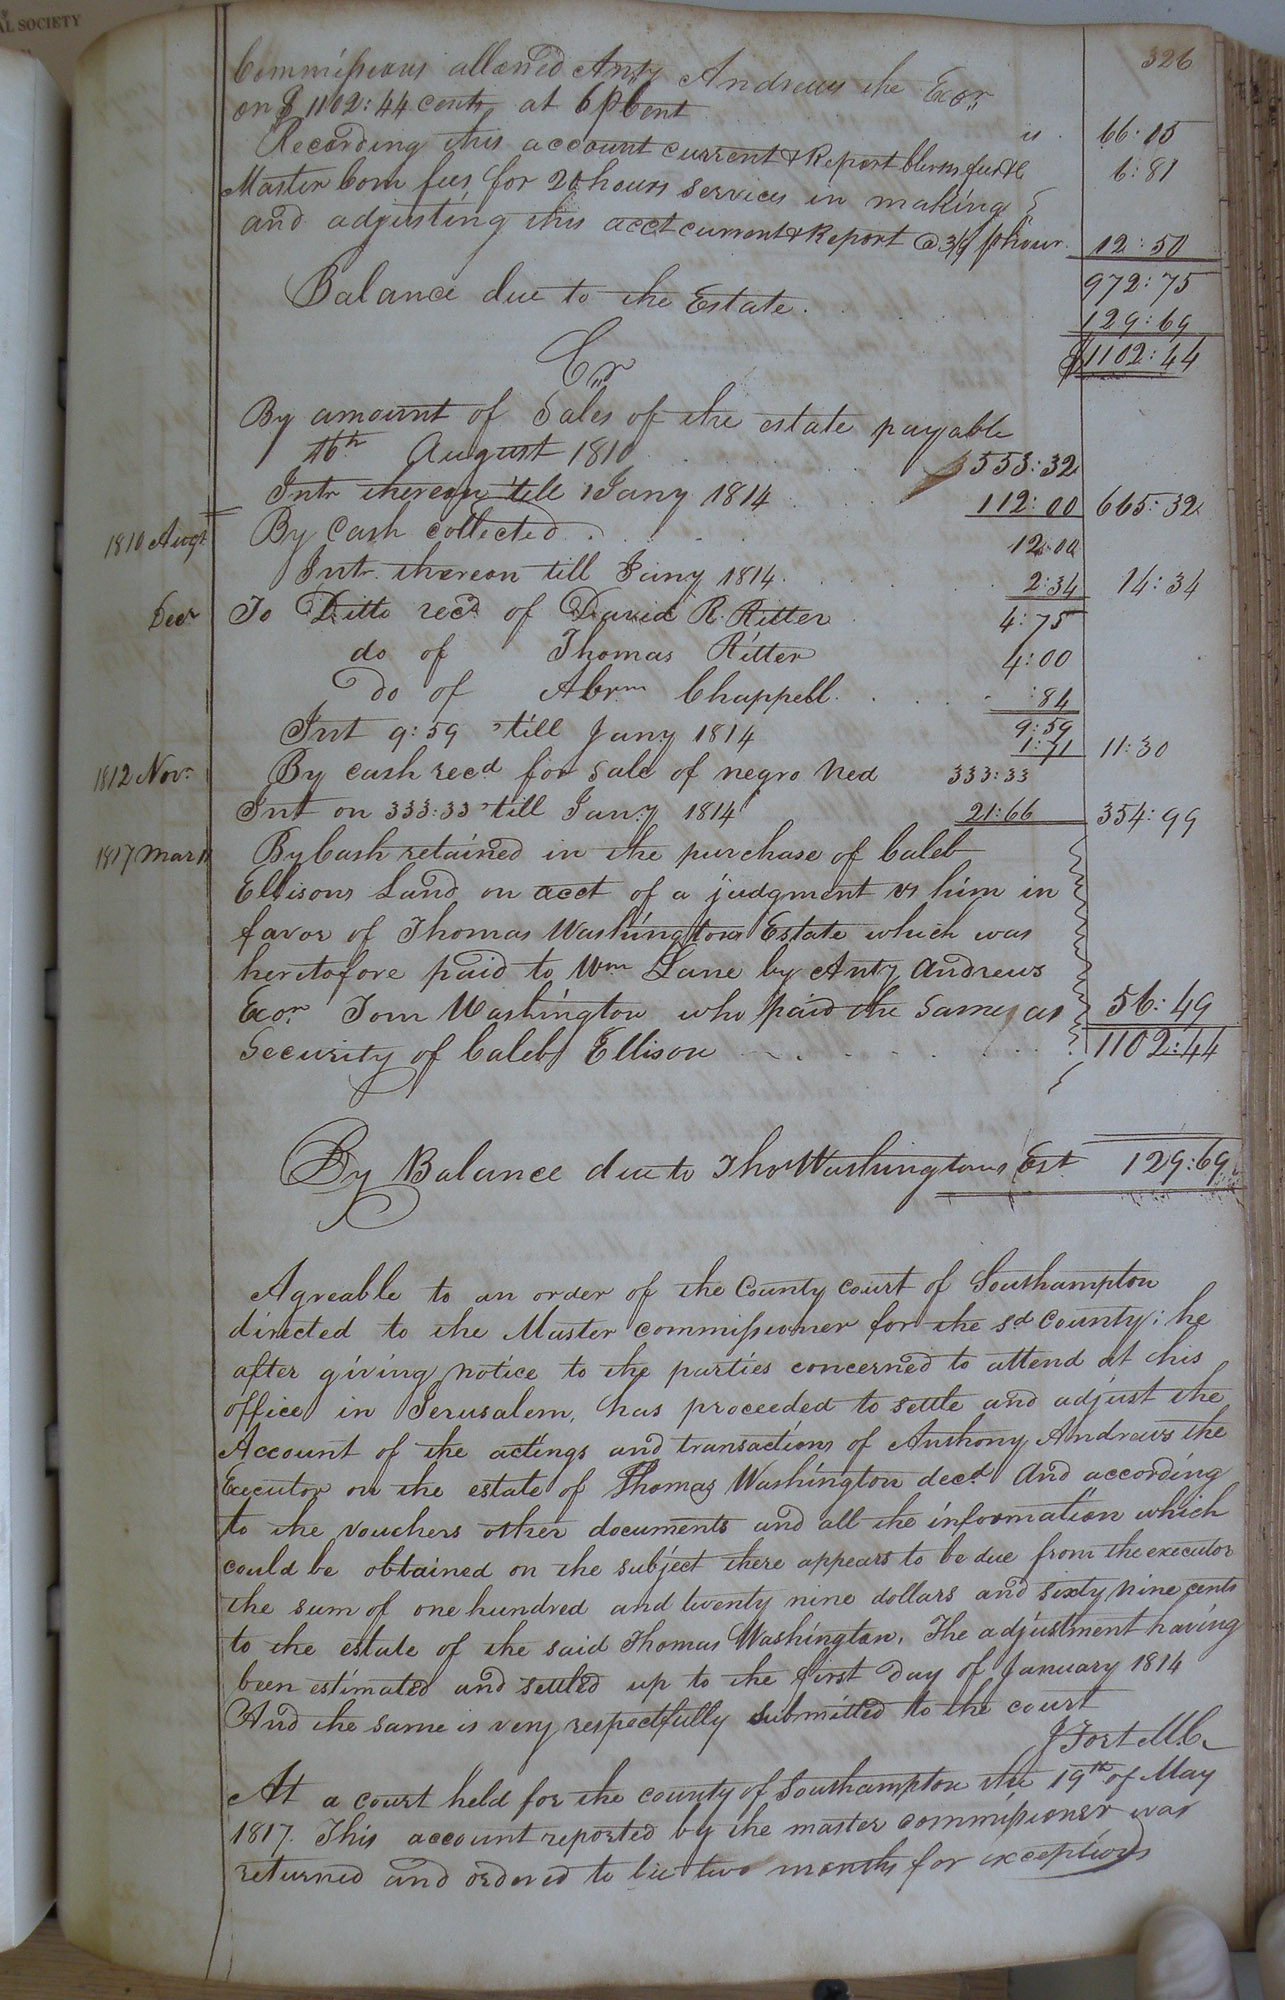 AL SOCIETY
326
Commissions allowed Anty Andrews the Exor
on $1102:44 cents at 6 p Cent is 66:15
Recording this account current & Report Clerks fee &c 6:81
Master Com fees for 20 hours services in making
and adjusting this acct current & Report @ 3/9 p hour 12:50
972:75
Balance due to the Estate. 129:69
$1102:44
Cr
By amount of Sales of the estate payable
16th August 1810 $553:32
Intr thereon till 1 Jany 1814 112:00 665:32
1810 Augt By Cash collected 12:00
Intr. thereon till Jany 1814 2:34 14:34
Decr To Ditto recd of David R. Ritter 4:75
do of Thomas Ritter 4:00
Do of Abrm Chappell :84
9:59
Int 9:59 'till Jany 1814 1:71 11:30
1812 Novr By cash recd for Sale of negro Ned 333:33
Int on 333:33 'till Jany 1814 21:66 354:99
1817 Mar By Cash retained in the purchase of Caleb
Ellisons Land on acct of a judgment vs him in
favor of Thomas Washingtons Estate which was
heretofore paid to Wm Lane by Anty Andrews
Exor Tom Washington who paid the same as 56:49
Security of Caleb Ellison 1102:44
By Balance due to Thos Washingtons Est 129:69
Agreable to an order of the County court of Southampton
directed to the Master commissioner for the sd County; he
after giving notice to the parties concerned to attend at his
office in Jerusalem, has proceeded to settle and adjust the
Account of the actings and transactions of Anthony Andrews the
Executor on the estate of Thomas Washington decd And according
to the vouchers other documents and all the information which
could be obtained on the subject there appears to be due from the executor
the sum of one hundred and twenty nine dollars and sixty nine cents
to the estate of the said Thomas Washington. The adjustment having
been estimated and settled up to the first Day of January 1814
And the same is very respectfully submitted to the court
J Fort M.C.
At a court held for the county of Southampton the 19th of May
1817. This account reported by the master commissioner was
returned and ordered to lie two months for exceptions